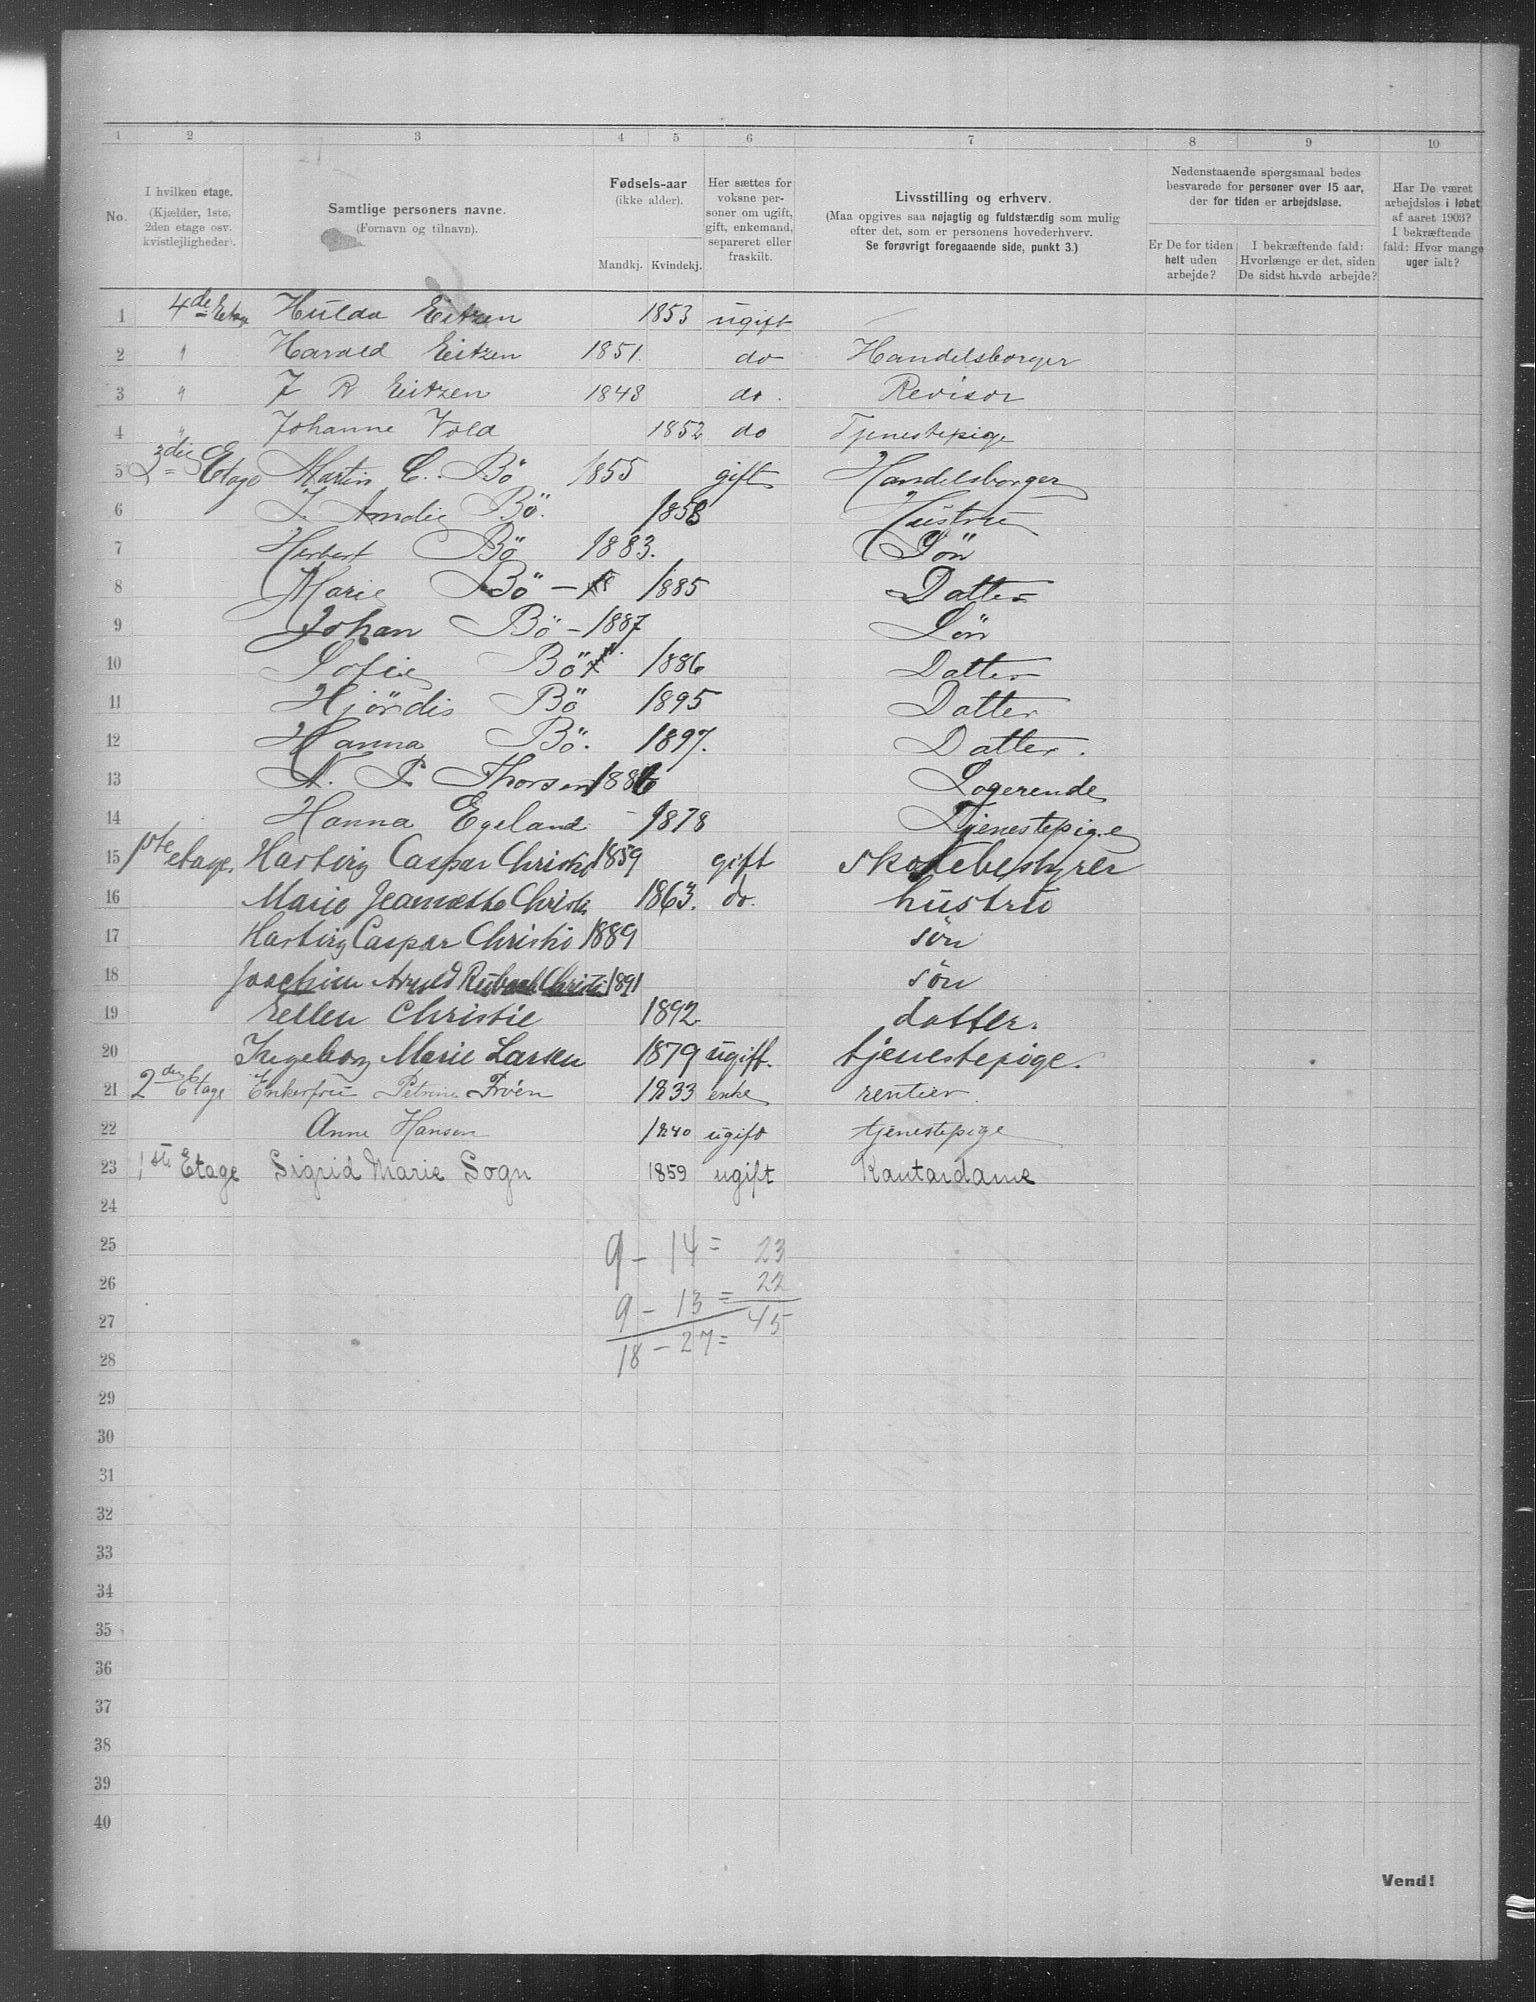 1 2 3 4 5 6 7 8 9 10
No.
I hvilken etage. (Kjælder, 1ste, 2den etage osv. kvistlejligheder).
Samtlige personers navne. (Fornavn og tilnavn).
Fødsels-aar (ikke alder). Mandkj. Kvindekj.
Her sættes for voksne personer om ugift, gift, enkemand, separeret eller fraskilt.
Livsstilling og erhverv. (Maa opgives saa nøjagtig og fuldstærdig som mulig efter det, som er personens hovederhverv. Se forøvrigt foregaaende side, punkt 3.)
Nedenstaaende spørgsmaal bedes besvarede for personer over 15 aar, der for tiden er arbejdsløse.
Er De for tiden helt uden arbejde?
I bekræftende fald: Hvorlænge er det, siden De sidst havde arbejde?
Har De været arbejdsløs i løbet af aaret 1903? I bekræftende fald: Hvor mange uger ialt?
1 4de Etage Hulda Eitzen 1853 ugift
2 " Harald Eitzen 1851. do Handelsborger
3 " J R Eitzen 1848 do. Revisor
4 " Johanne Vold 1852 do Tjenestepige
5 3die Etage Martin C. Bö 1855 gift Handelsborger
6 J. Amalie Bö. 1858 Hustru
7 Herbert Bö 1883. Sön
8 Marie Bö – 1885 Datter
9 Johan Bö – 1887 Sön
10 Sofie Bö 1886 Datter
11 Hjördis Bö 1895 Datter
12 Hanna Bö. 1897. Datter.
13 N. P Thorsen 1886 Logerende
14 Hanna Egeland – 1878 Tjenestepige
15 1ste etage. Hartvig Caspar Christie 1859 gift Skolebestyrer
16 Marie Jeanette Christie 1863. do. hustru
17 Hartvig Caspar Christie 1889 søn
18 Joachim Arnold Christie 1891 søn
19 Ellen Christie 1892. datter.
20 Ingeborg Marie Larsen 1879 ugift. tjenestepige.
21 2den Etage Enkefru Petrine 1833 enke rentier.
22 Anne Hansen 1840 ugift tjenestepige
23 1ste Etage Sigrid Marie Sogn 1859 ugift Kantordame
24
25 9 – 14 = 23
26 9 – 13 = 22
27 18 – 27 = 45
28
29
30
31
32
33
34
35
36
37
38
39
40
Vend!